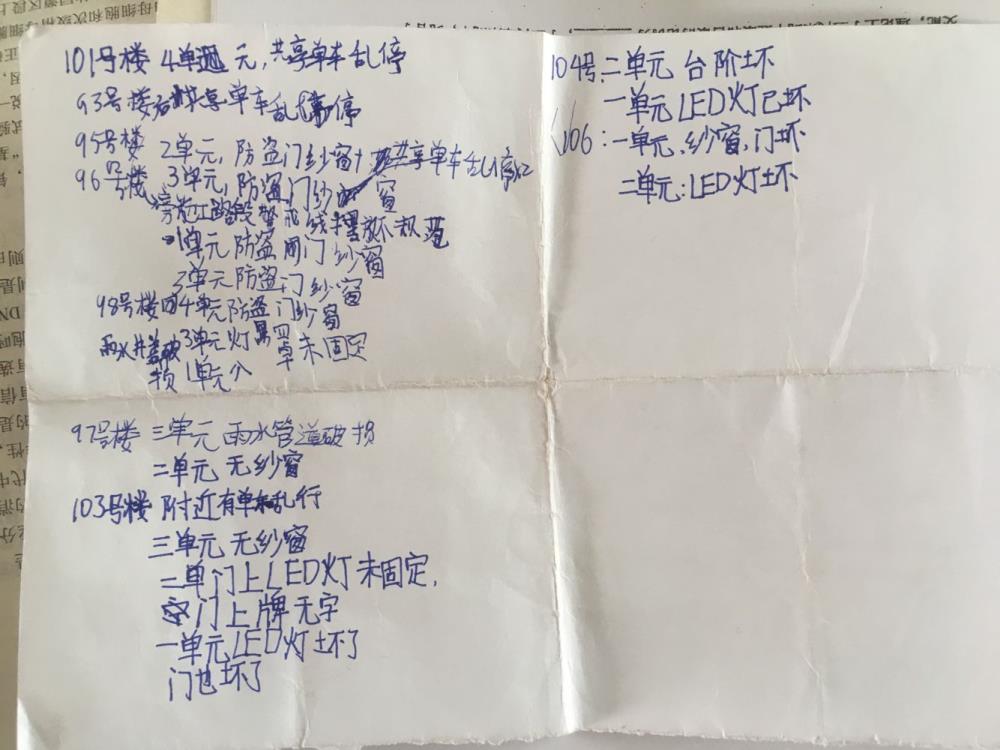 101号楼 4单元,共享单车乱停
93号楼右共享单车乱停
95号楼 2单元,防盗门纱窗+共享单车乱停
96号楼 3单元,防盗门纱窗
旁施工路段警戒线摆放不规范
1单元防盗门纱窗
3单元防盗门纱窗
98号楼 4单元防盗门纱窗
雨水井盖破损
3单元灯罩未固定
1单元
97号楼 三单元 雨水管道破损
二单元 无纱窗
103号楼 附近有单车乱行
三单元 无纱窗
二单门上LED灯未固定,
门上牌无字
一单元LED灯坏了
门也坏了
104号二单元 台阶坏
一单元LED灯已坏
106:一单元、纱窗、门坏
二单元:LED灯坏